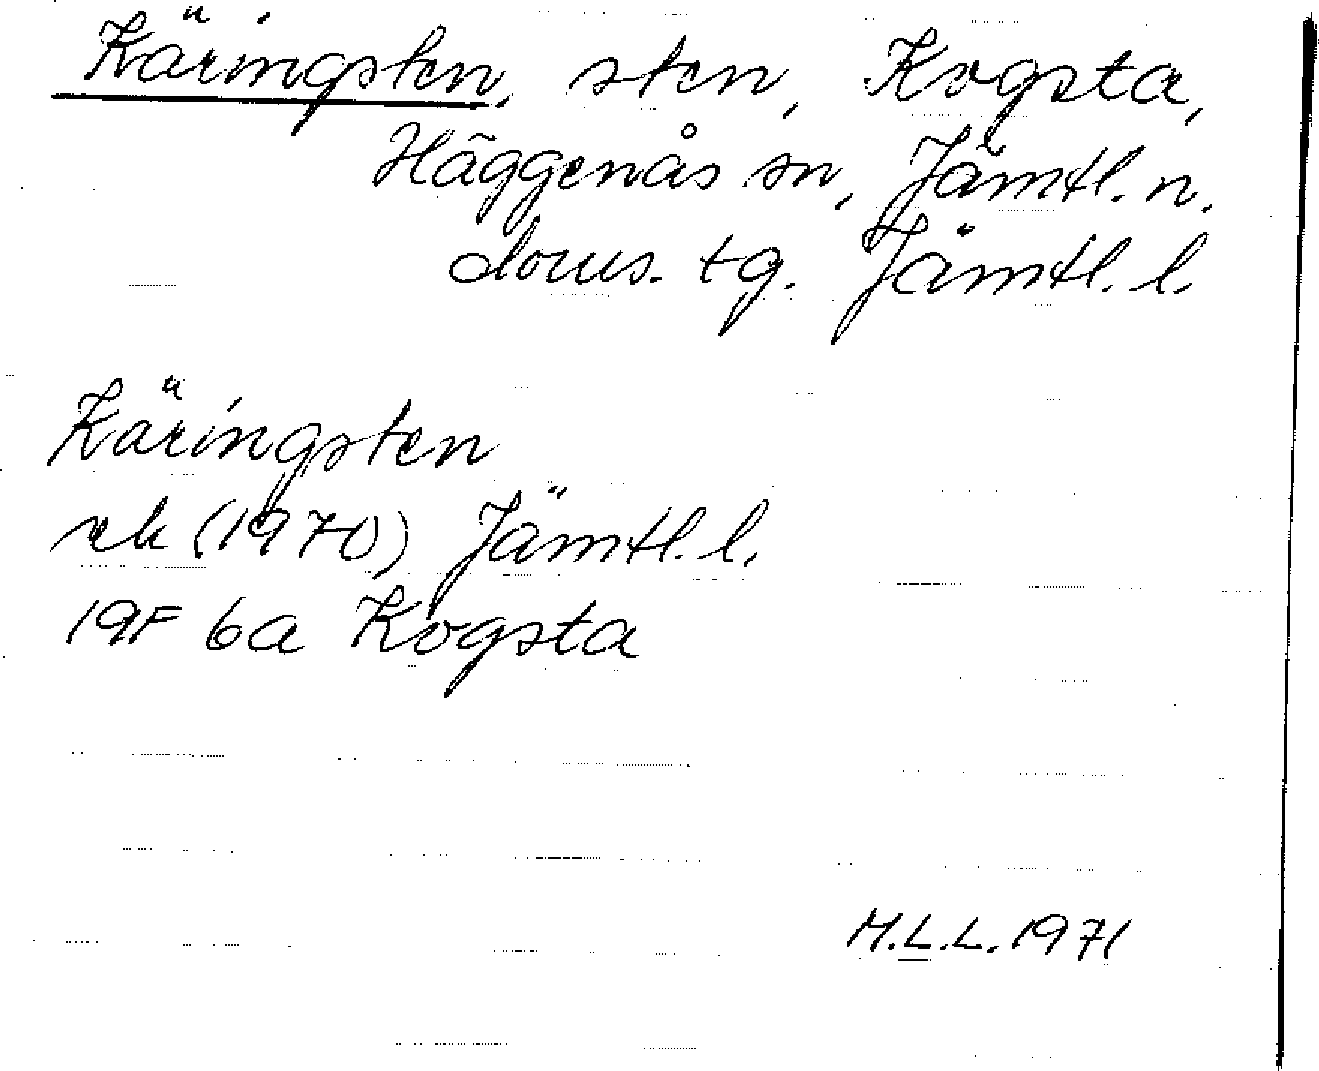 Käringsten, sten, Kogsta,
Häggenås sn, Jämtl. n.
doms. tg. Jämtl. l.
Käringsten
rek (1970) Jämtl. l.
19F 6a Kogsta
M.L.L. 1971